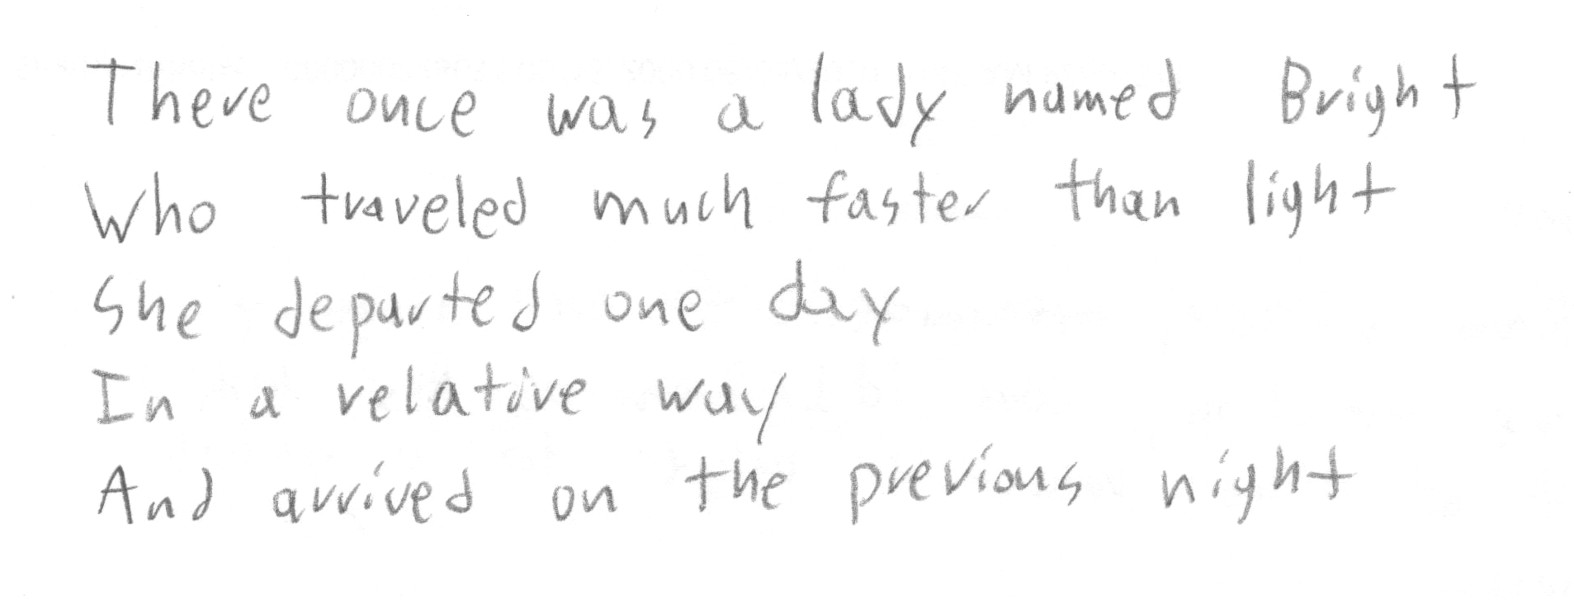 There once was a lady named Bright
Who traveled much faster than light
She departed one day
In a relative way
And arrived on the previous night